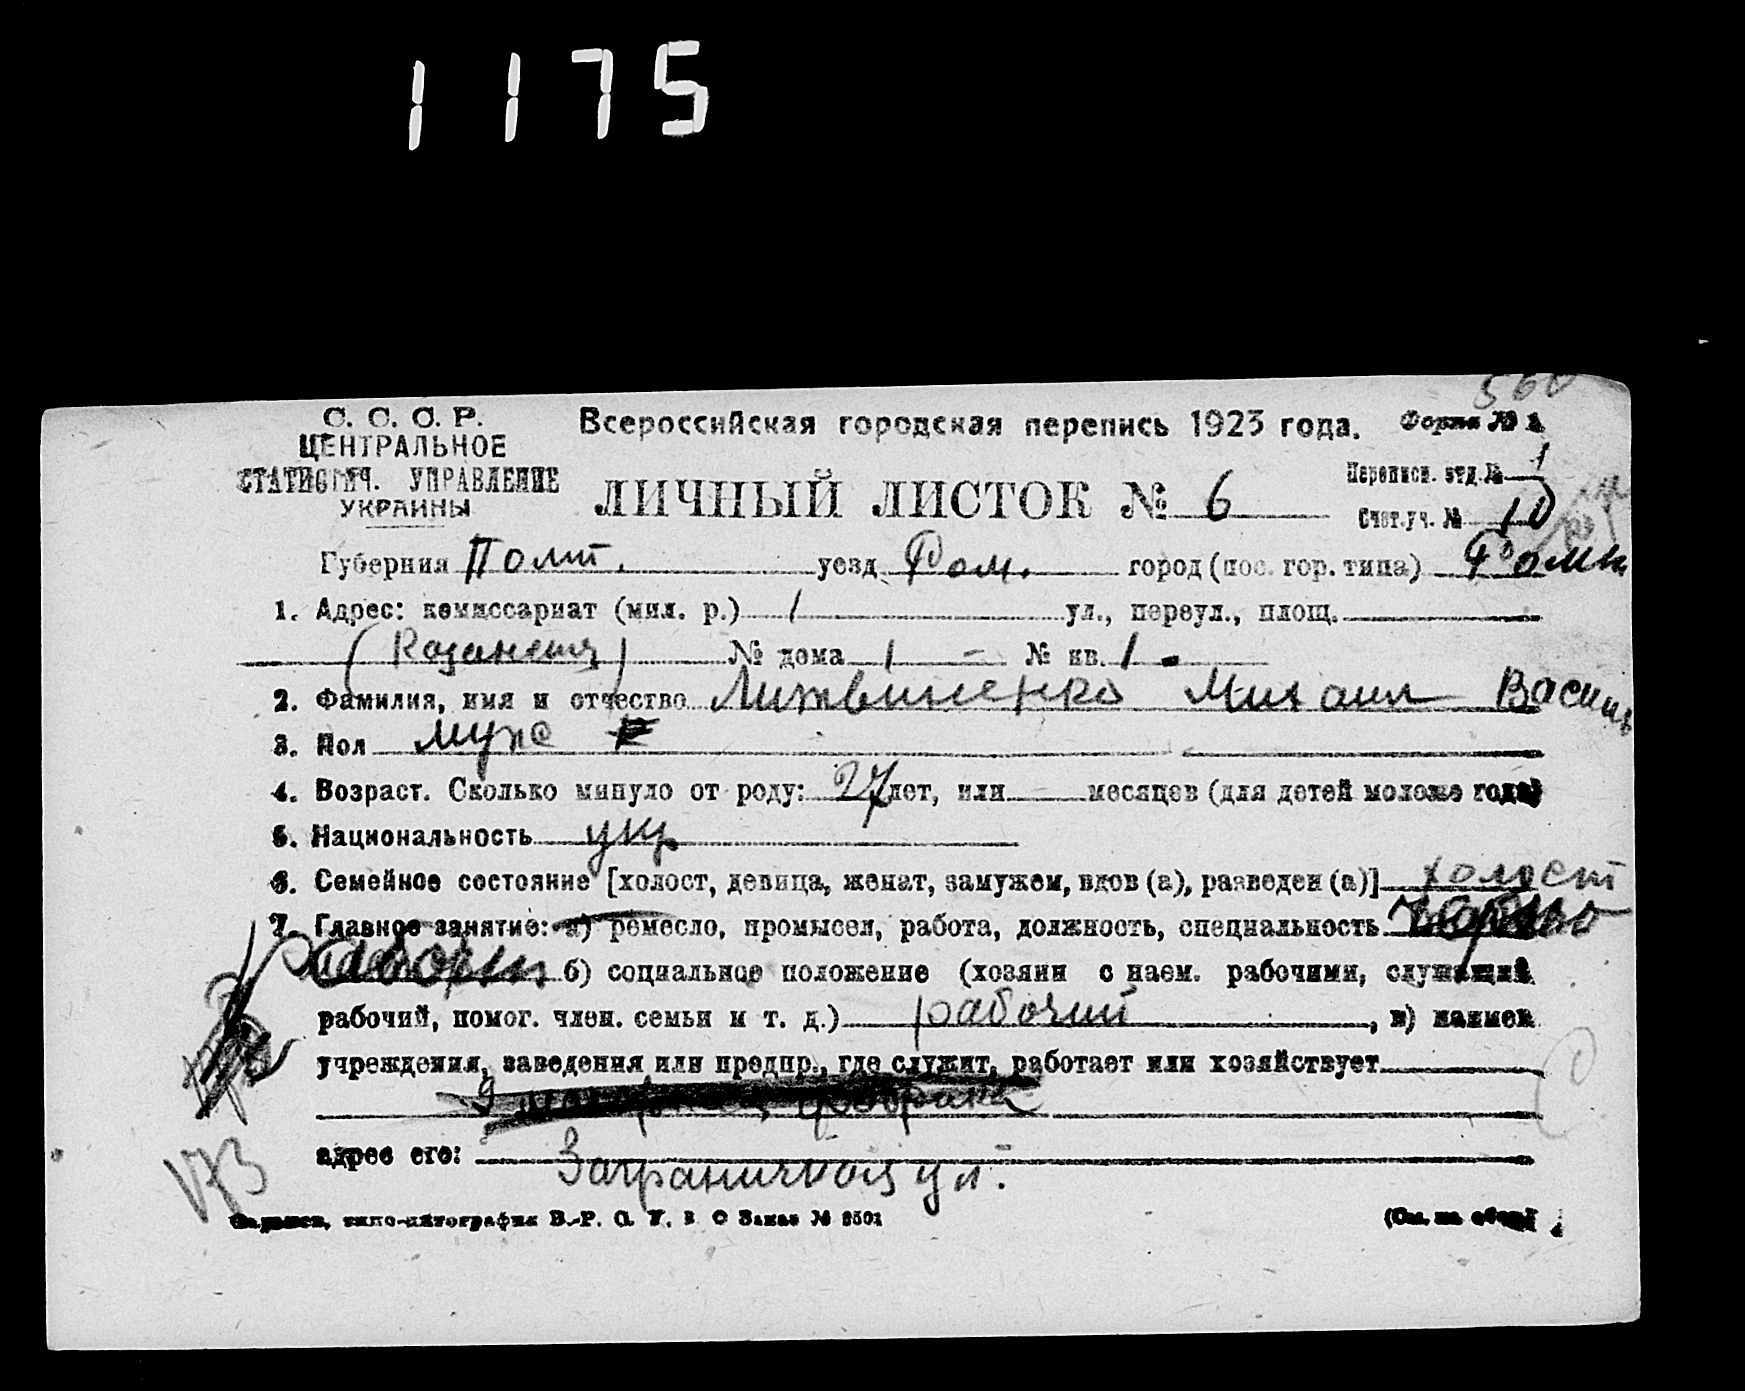 1175
560
С. С. С. Р.
Всероссийская городская перепись 1923 года. Форма № 1
ЦЕНТРАЛЬНОЕ
СТАТИСТИЧ. УПРАВЛЕНИЕ
УКРАИНЫ
ЛИЧНЫЙ ЛИСТОК № 6
Переписн. отд. № 1
Счет. уч. № 10
Губерния Полт. уезд Ром. город (пос. гор. типа) Ромн
1. Адрес: комиссариат (мил. р.) 1 ул., переул., площ.
№ дома 1 - № кв. 1
2. Фамилия, имя и отчество Литвиненко Михаил Василь
3. Пол муж
4. Возраст. Сколько минуло от роду: 27 лет, или месяцев (для детей моложе года)
5. Национальность укр
6. Семейное состояние [холост, девица, женат, замужем, вдов (а), разведен (а)] холост
7. Главное занятие: а) ремесло, промысел, работа, должность, специальность
б) социальное положение (хозяин с наем. рабочими, служащий
рабочий, помог. член. семьи и т. д.) рабочий, в) наимен
учреждения, заведения или предпр., где служит, работает или хозяйствует
фабрика
адрес его: Заграничной ул.
типо-литография Заказ №
(См. на обор.)